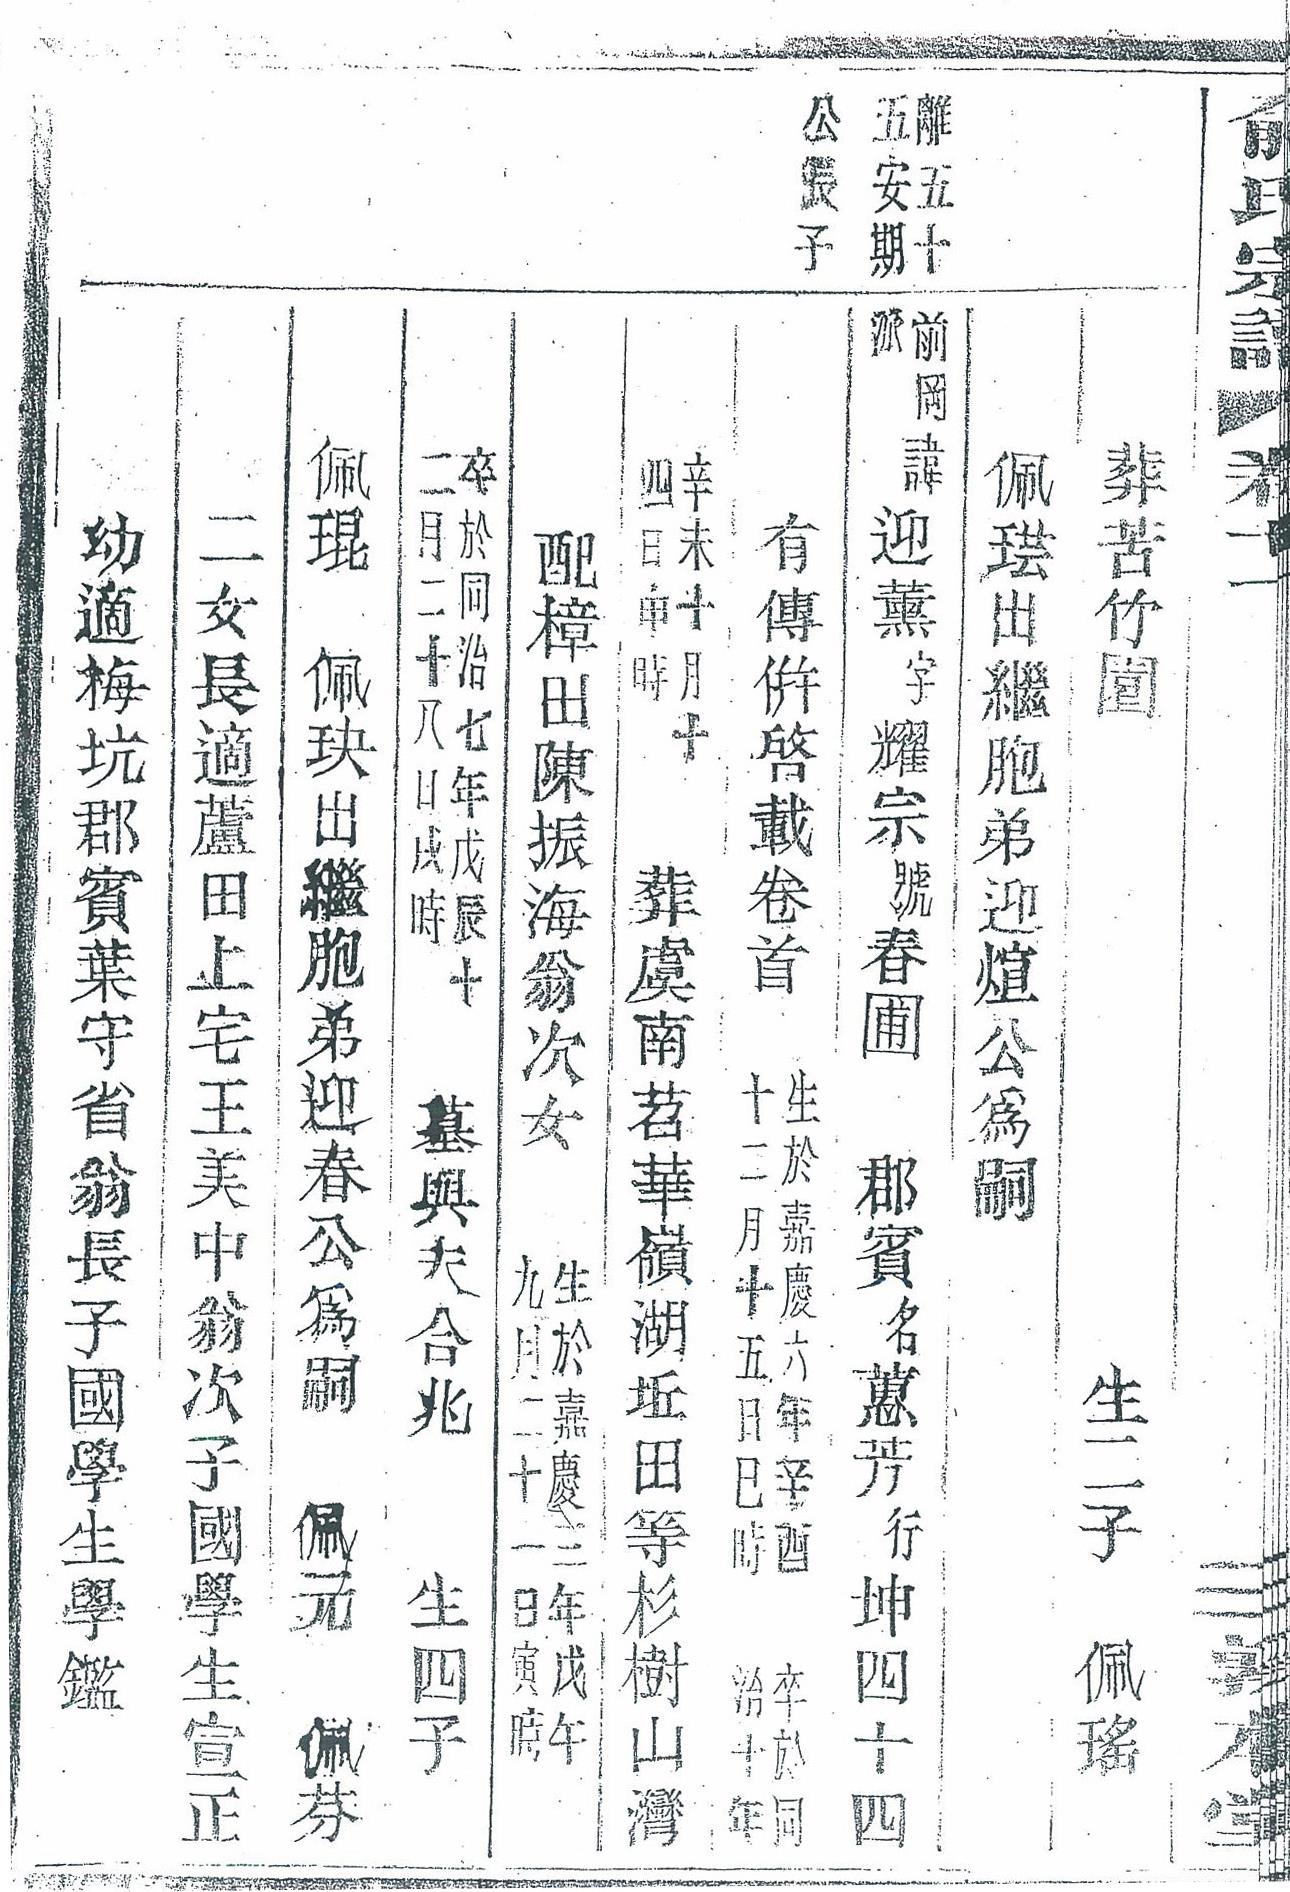 俞氏宗譜 卷十一 敦本堂
葬苦竹園 生二子 佩瑤
佩珙出繼胞弟迎煊公為嗣
離五十
五安期
公長子
前岡
派
諱迎薰字耀宗號春圃 郡賓名蕙芳行坤四十四
有傳併啓載卷首 生於嘉慶六年辛酉
十二月十五日巳時 卒於同
治十年
辛未十月十
四日申時 葬虞南苕華嶺湖坵田等杉樹山灣
配樟田陳振海翁次女 生於嘉慶三年戊午
九月二十一日寅時
卒於同治七年戊辰十
二月二十八日戌時 墓與夫合兆 生四子
佩琨 佩玦出繼胞弟迎春公為嗣 佩元 佩芬
二女長適蘆田上宅王美中翁次子國學生宣正
幼適梅坑郡賓葉守省翁長子國學生學鑑